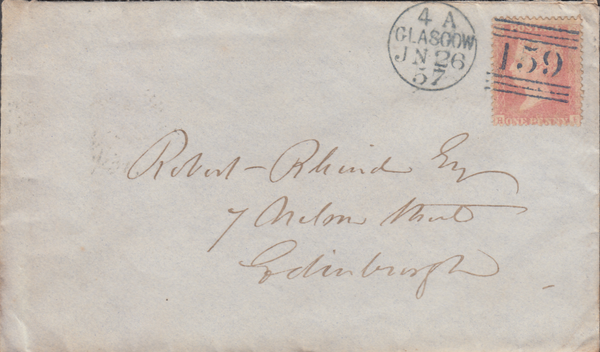 4 A
GLASGOW
JN 26
57
159
Robert Rhind Esq
7 Nelson Street
Edinburgh